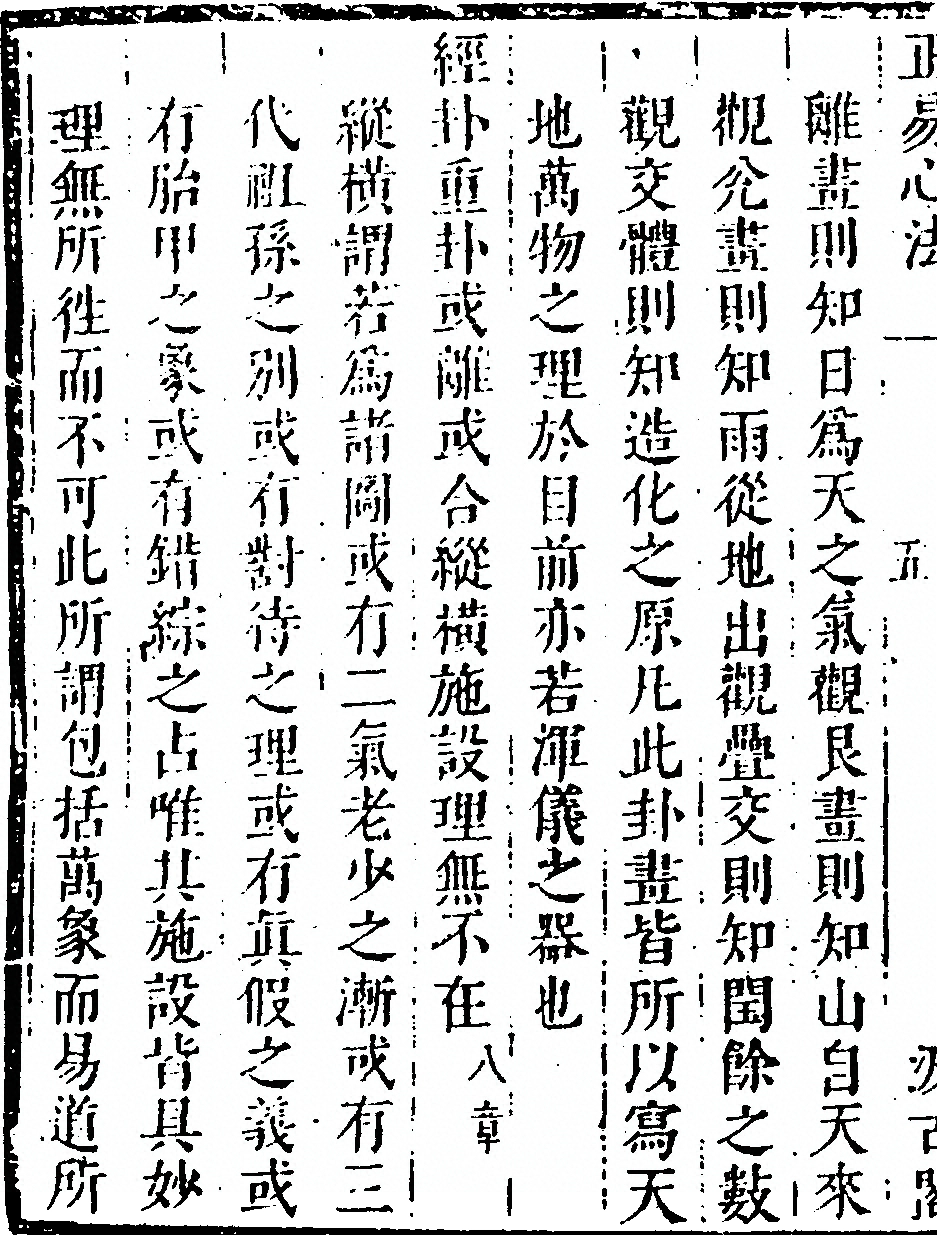 正易心法 五 汲古閣
離畫則知日爲天之氣觀艮畫則知山自天來
觀兊畫則知雨從地出觀疊交則知閏餘之數
觀交體則知造化之原凡此卦畫皆所以寫天
地萬物之理於目前亦若渾儀之器也
經卦重卦或離或合縱橫施設理無不在 八章
縱橫謂若爲諸圖或有二氣老少之漸或有三
代祖孫之別或有對待之理或有眞假之義或
有胎甲之象或有錯綜之占唯其施設皆具妙
理無所徃而不可此所謂包括萬象而易道所